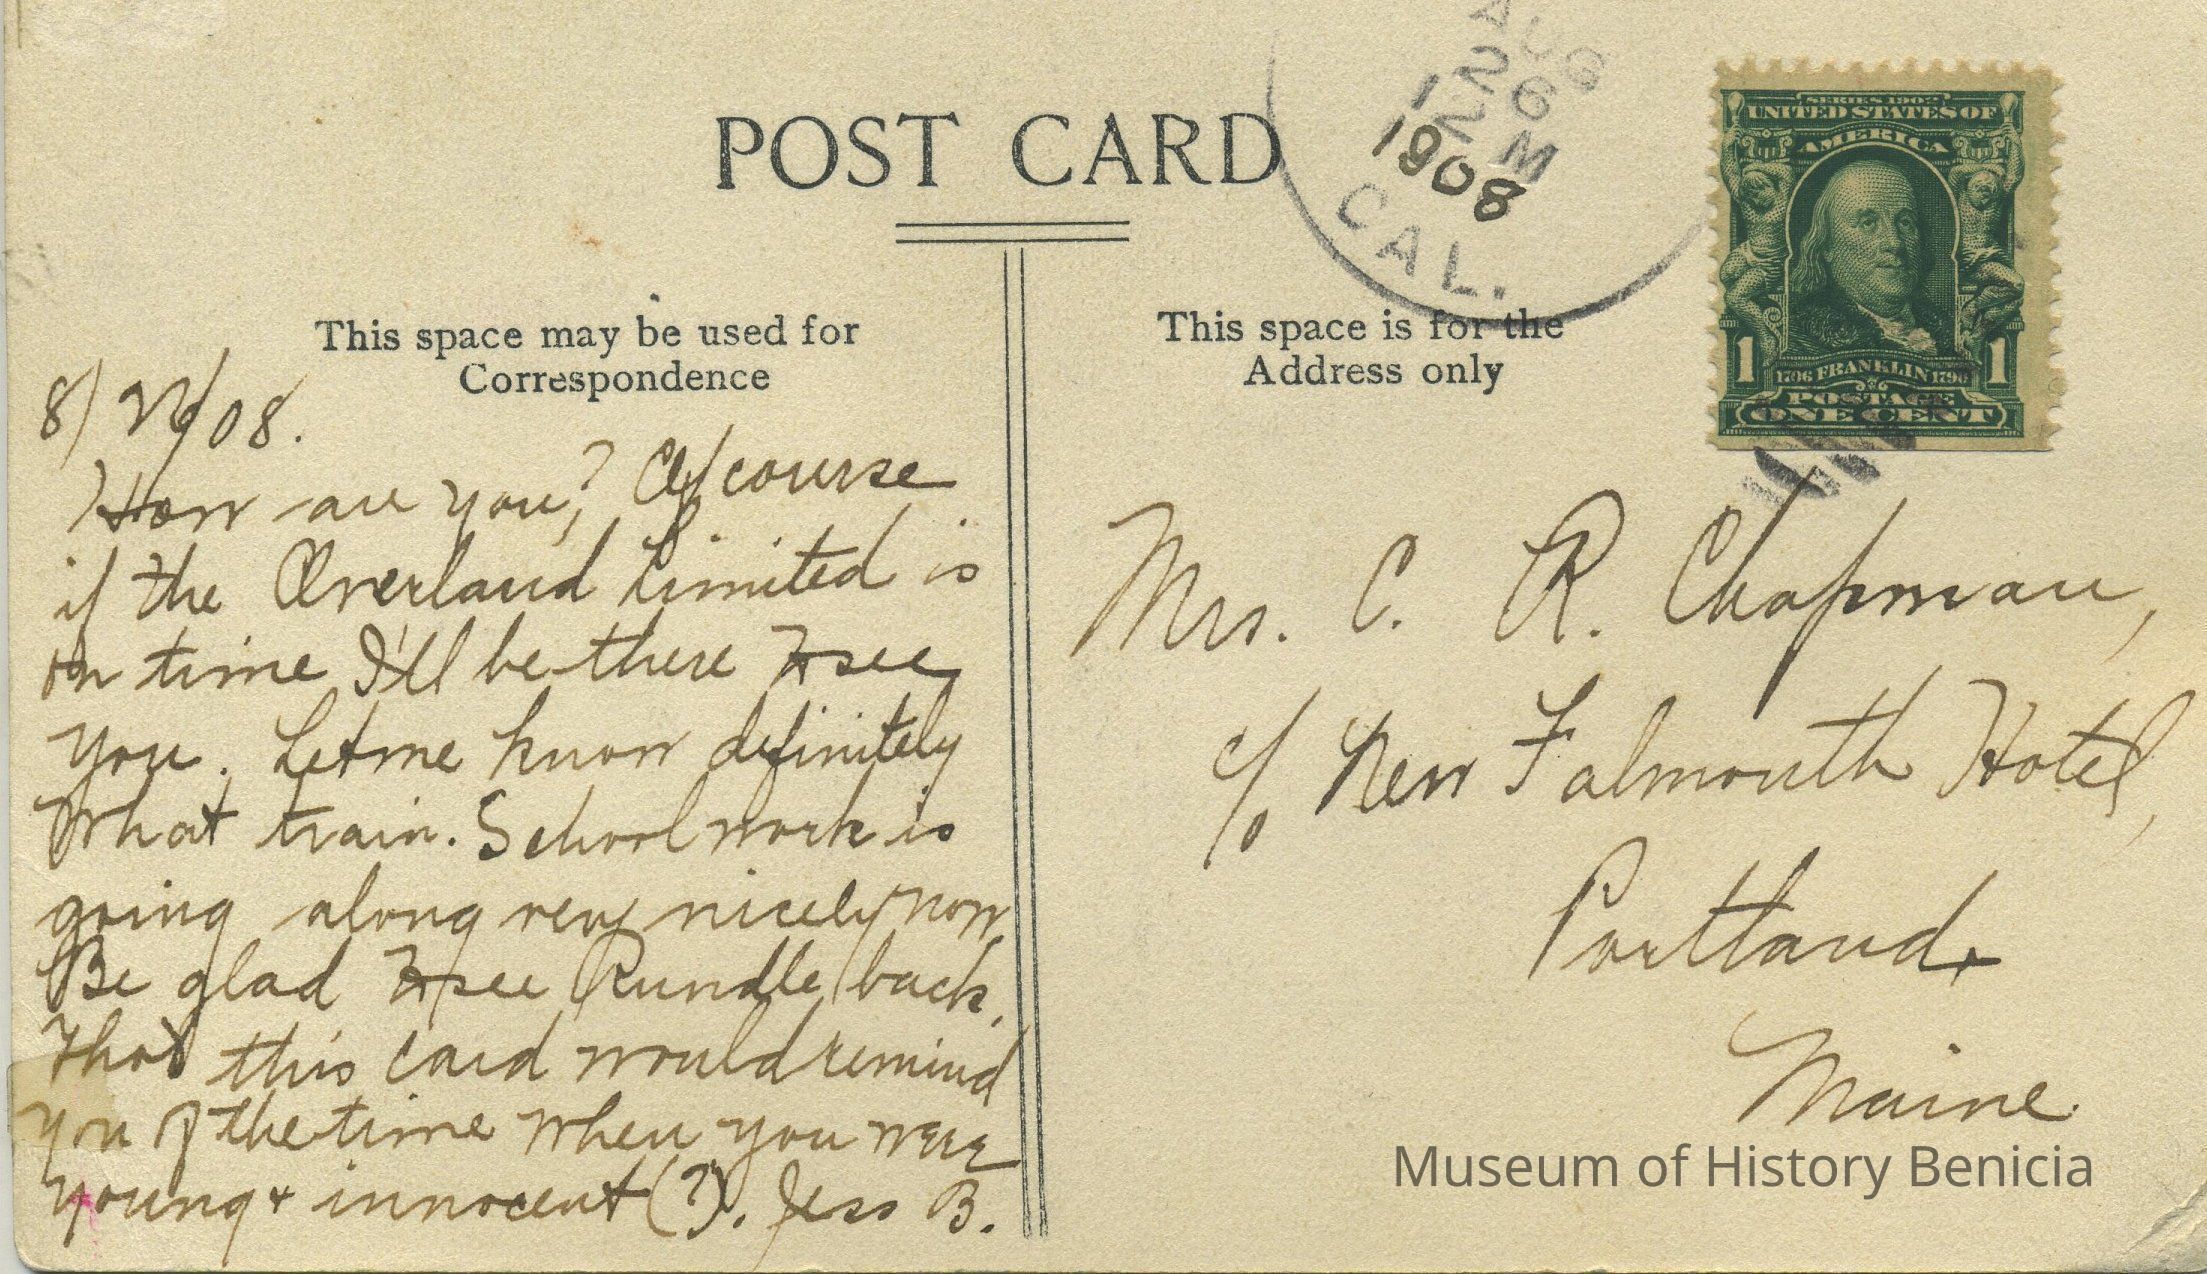 POST CARD
AUG
26
12 M
1908
CAL.
SERIES 1902
UNITED STATES OF
AMERICA
1706 FRANKLIN 1790
1 1
POSTAGE
ONE CENT
This space may be used for
Correspondence
8/26/08.
How are you? Of course
if the Overland Limited is
on time I'll be there to see
you. Let me know definitely
what train. School work is
going along very nicely now.
Be glad to see Rundle back.
Tho't this card would remind
you of the time when you were
young + innocent (?). Jess B.
This space is for the
Address only
Mrs. C. R. Chapman,
c/o New Falmouth Hotel,
Portland,
Maine.
Museum of History Benicia